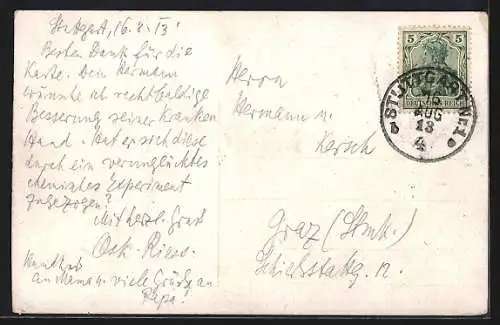 Stuttgart, 16.8.13.
Besten Dank für die
Karte. Dem Hermann
wünsche ich recht baldige
Besserung seiner kranken
Hand. Hat er sich diese
durch ein verunglücktes
chemisches Experiment
zugezogen?
Mit herzl. Gruß
Osk.
an Mama u. viele Grüße an
Papa.
Herrn
Hermann
Graz (Stmk.)
5 5
DEUTSCHES REICH
STUTTGART No 1
16
AUG
13
4